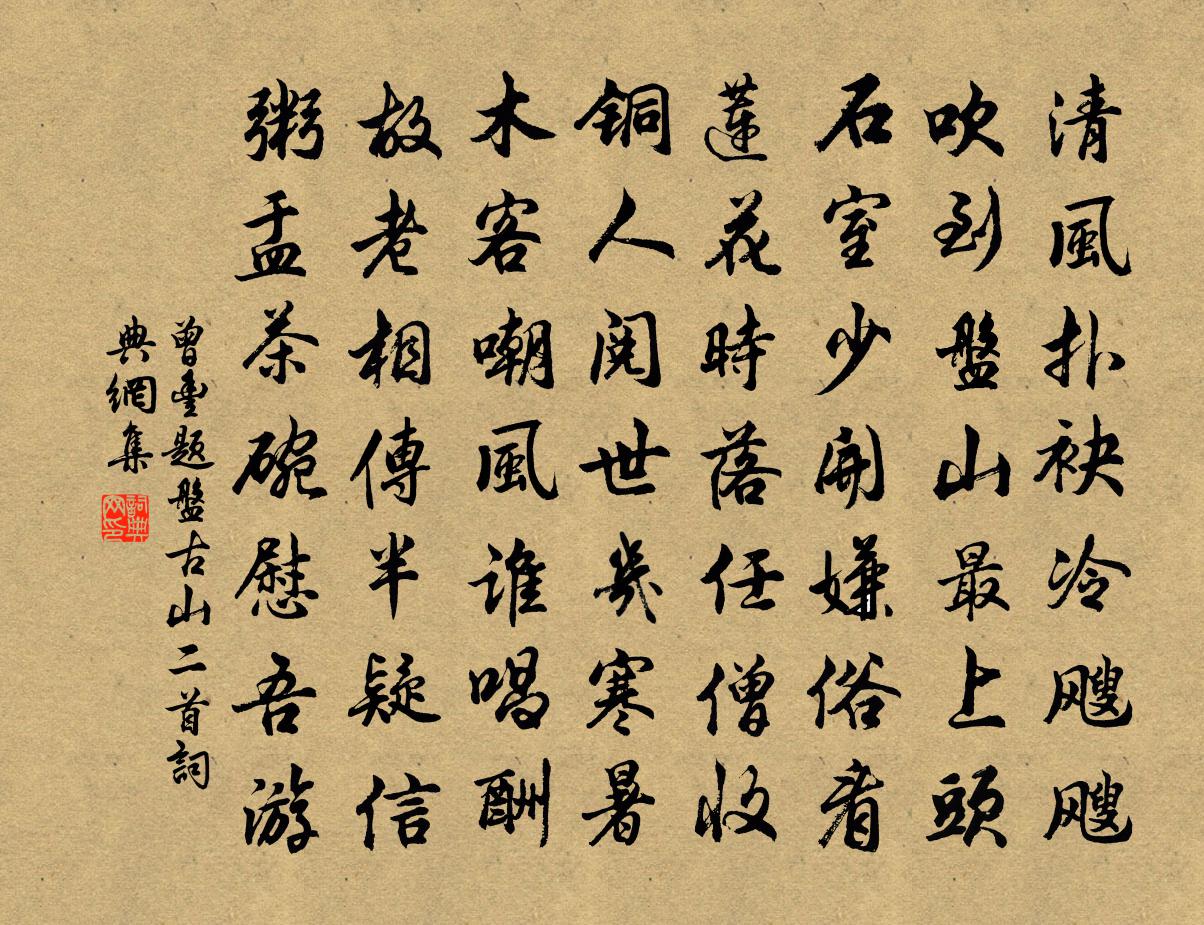 清風扑袂冷颼颼
吹到盤山最上頭
石室少開嫌俗看
蓮花時落任僧收
銅人閱世幾寒暑
木客嘲風誰唱酬
故老相傳半疑信
粥盂茶碗慰吾游
曾豐題盤古山二首詞
典網集
詞典网印